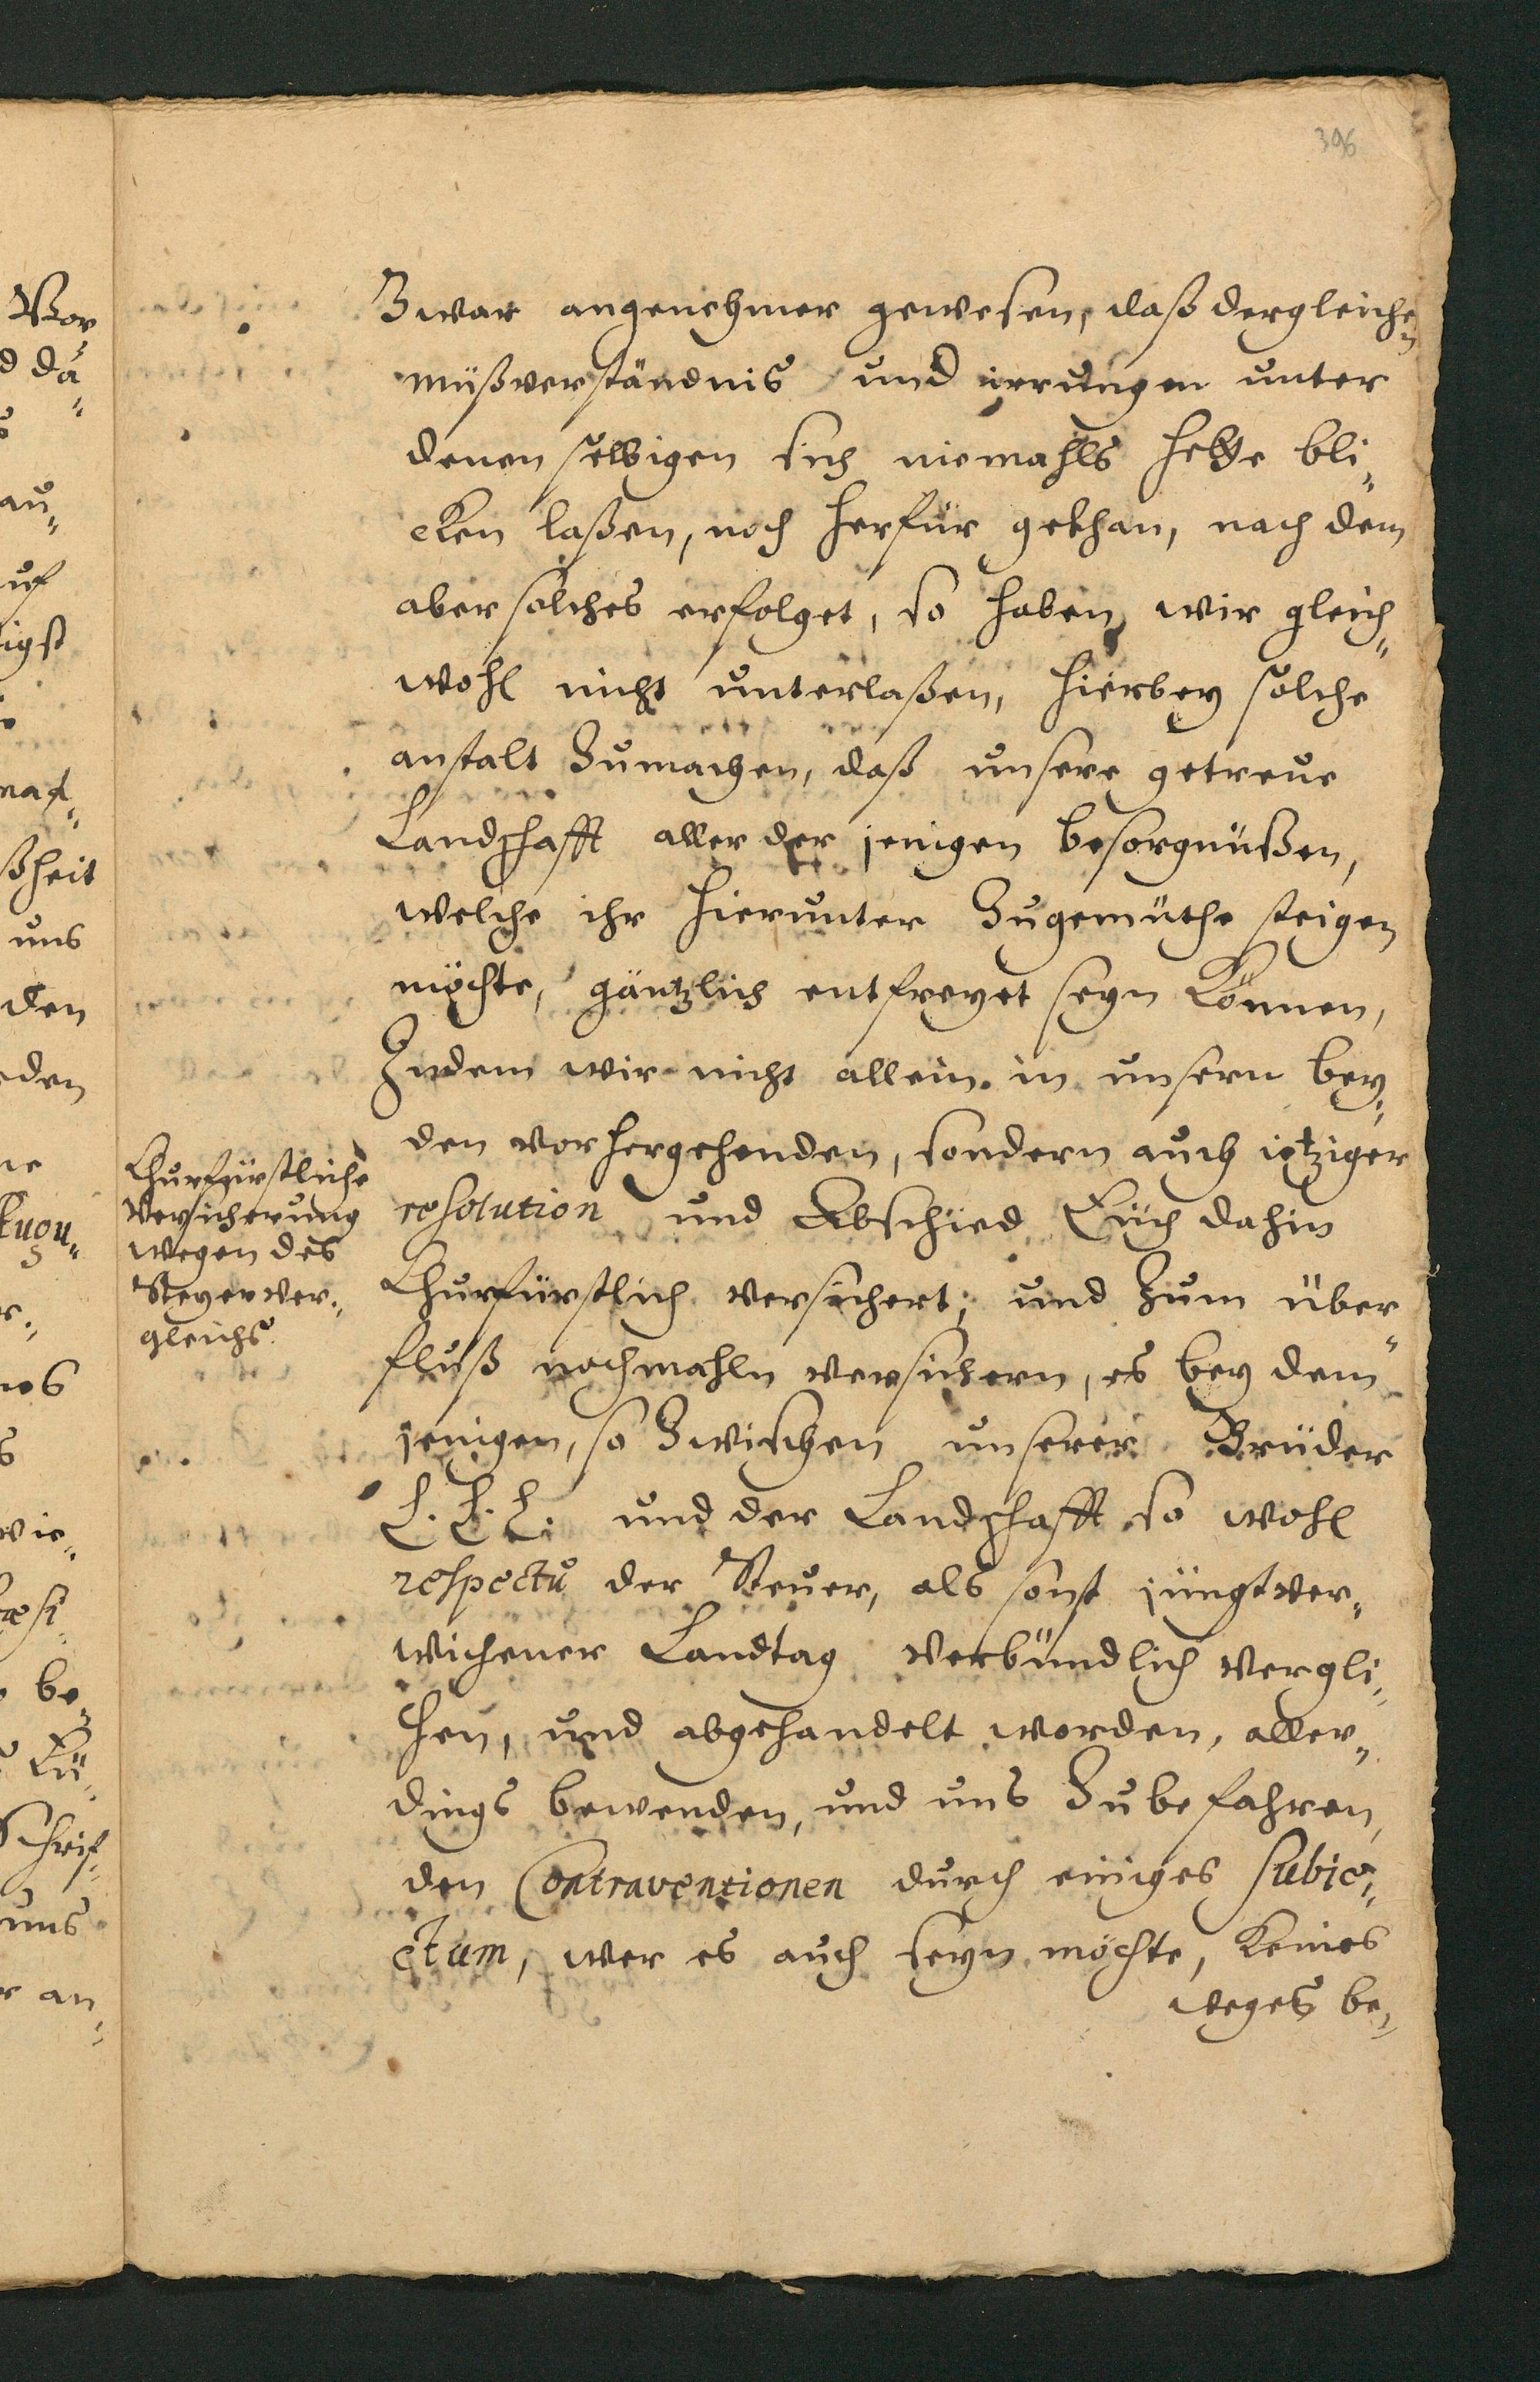 396
Zwar angenehmer gewesen, daß dergleichen
mißverständnis und irrungen unter
denenselbigen sich niemahls hette bli„
cken laßen, noch herfür gethan, nach dem
aber solches erfolget, so haben wir gleich„
wohl nicht unterlaßen, hierbey solche
anstalt Zumachen, daß unsere getreue
Landschafft aller der jenigen besorgnüßen,
welche ihr hierunter Zugemüthe steigen
möchte, gäntzlich entfreyet seyn können,
Indem wir nicht allein in unsern bey„
den vorhergehenden, sondern auch itziger
resolution und Abschied Euch dahin
Churfürstlich versichert, und Zum über„
fluß nochmahln versichern, es bey dem
jenigen, so Zwischen unserer Brüder
L. L. L. und der Landschafft so wohl
respectu der Steuer, als sonst jüngtver„
wichener Landtag verbündlich vergli„
hen, und abgehandelt worden, aller„
dings bewenden, und uns Zubefahren,
den Contraventionen durch einiges subje„
ctum, wer es auch seyn möchte, keines
weges be„
Churfürstliche
Versicherung
wegen des
Steyer ver„
gleichs.
Vor
d da
au„
uf
igst
ßheit
uns
den
eden
wie„
be„
Schrif„
uns
r an„